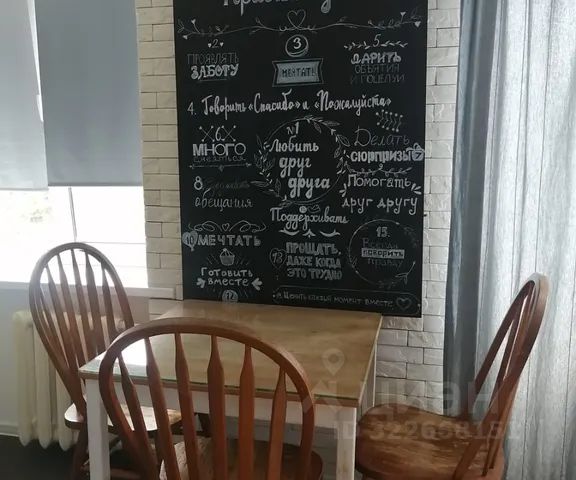 2.
ПРОЯВЛЯТЬ
ЗАБОТУ
3
МЕЧТАТЬ
5.
ДАРИТЬ
ОБЪЯТИЯ
И ПОЦЕЛУИ
4. Говорить «Спасибо» и «Пожалуйста»
6.
МНОГО
смеяться
№1
Любить
друг
друга
Делать
СЮРПРИЗЫ 7
8
обещания
Помогать
друг другу
Поддерживать
10 МЕЧТАТЬ
13
ПРОЩАТЬ,
ДАЖЕ КОГДА
ЭТО ТРУДНО
15.
Всегда
говорить
правду
Готовить
вместе
12
Ценить каждый момент вместе
циан
ID 322658151